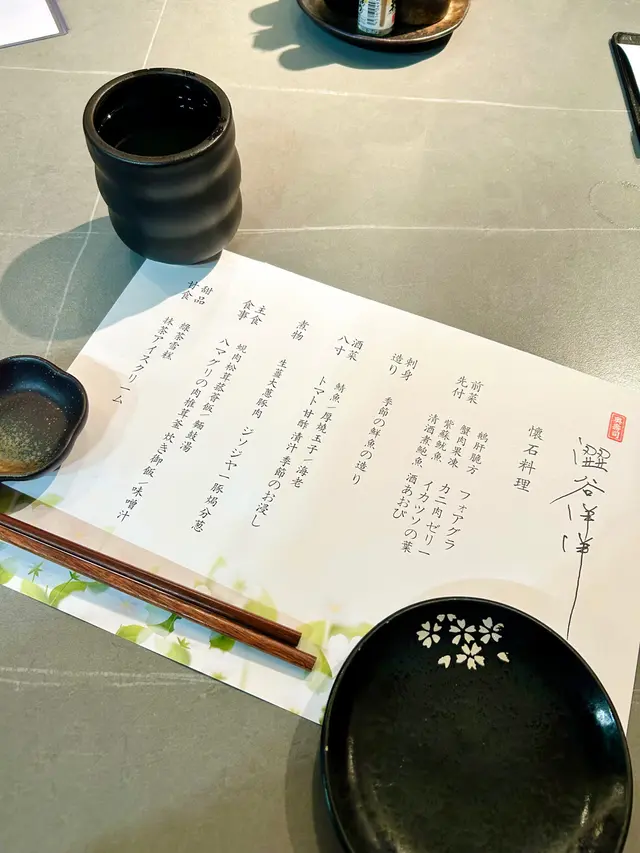 奥壽司
澀谷洋洋
懷石料理
前菜
先付
鵝肝脆方 フォアグラ
蟹肉果凍 カニ肉ゼリー
紫蘇魷魚 イカツソの葉
清酒煮鮑魚 酒あおび
刺身
造り
季節の鮮魚の造り
酒菜
八寸
鯖魚/厚燒玉子/海老
トマト甘酢漬汁季節のお浸し
煮物
生薑大蔥豚肉 ジソジヤー豚焗分葱
主食
食事
焼肉松茸菇薈飯/鯣鮭湯
ハマグリの肉椎茸釜炊き御飯/味噌汁
甜品
甘食
綠茶雪糕
抹茶アイスクリーム